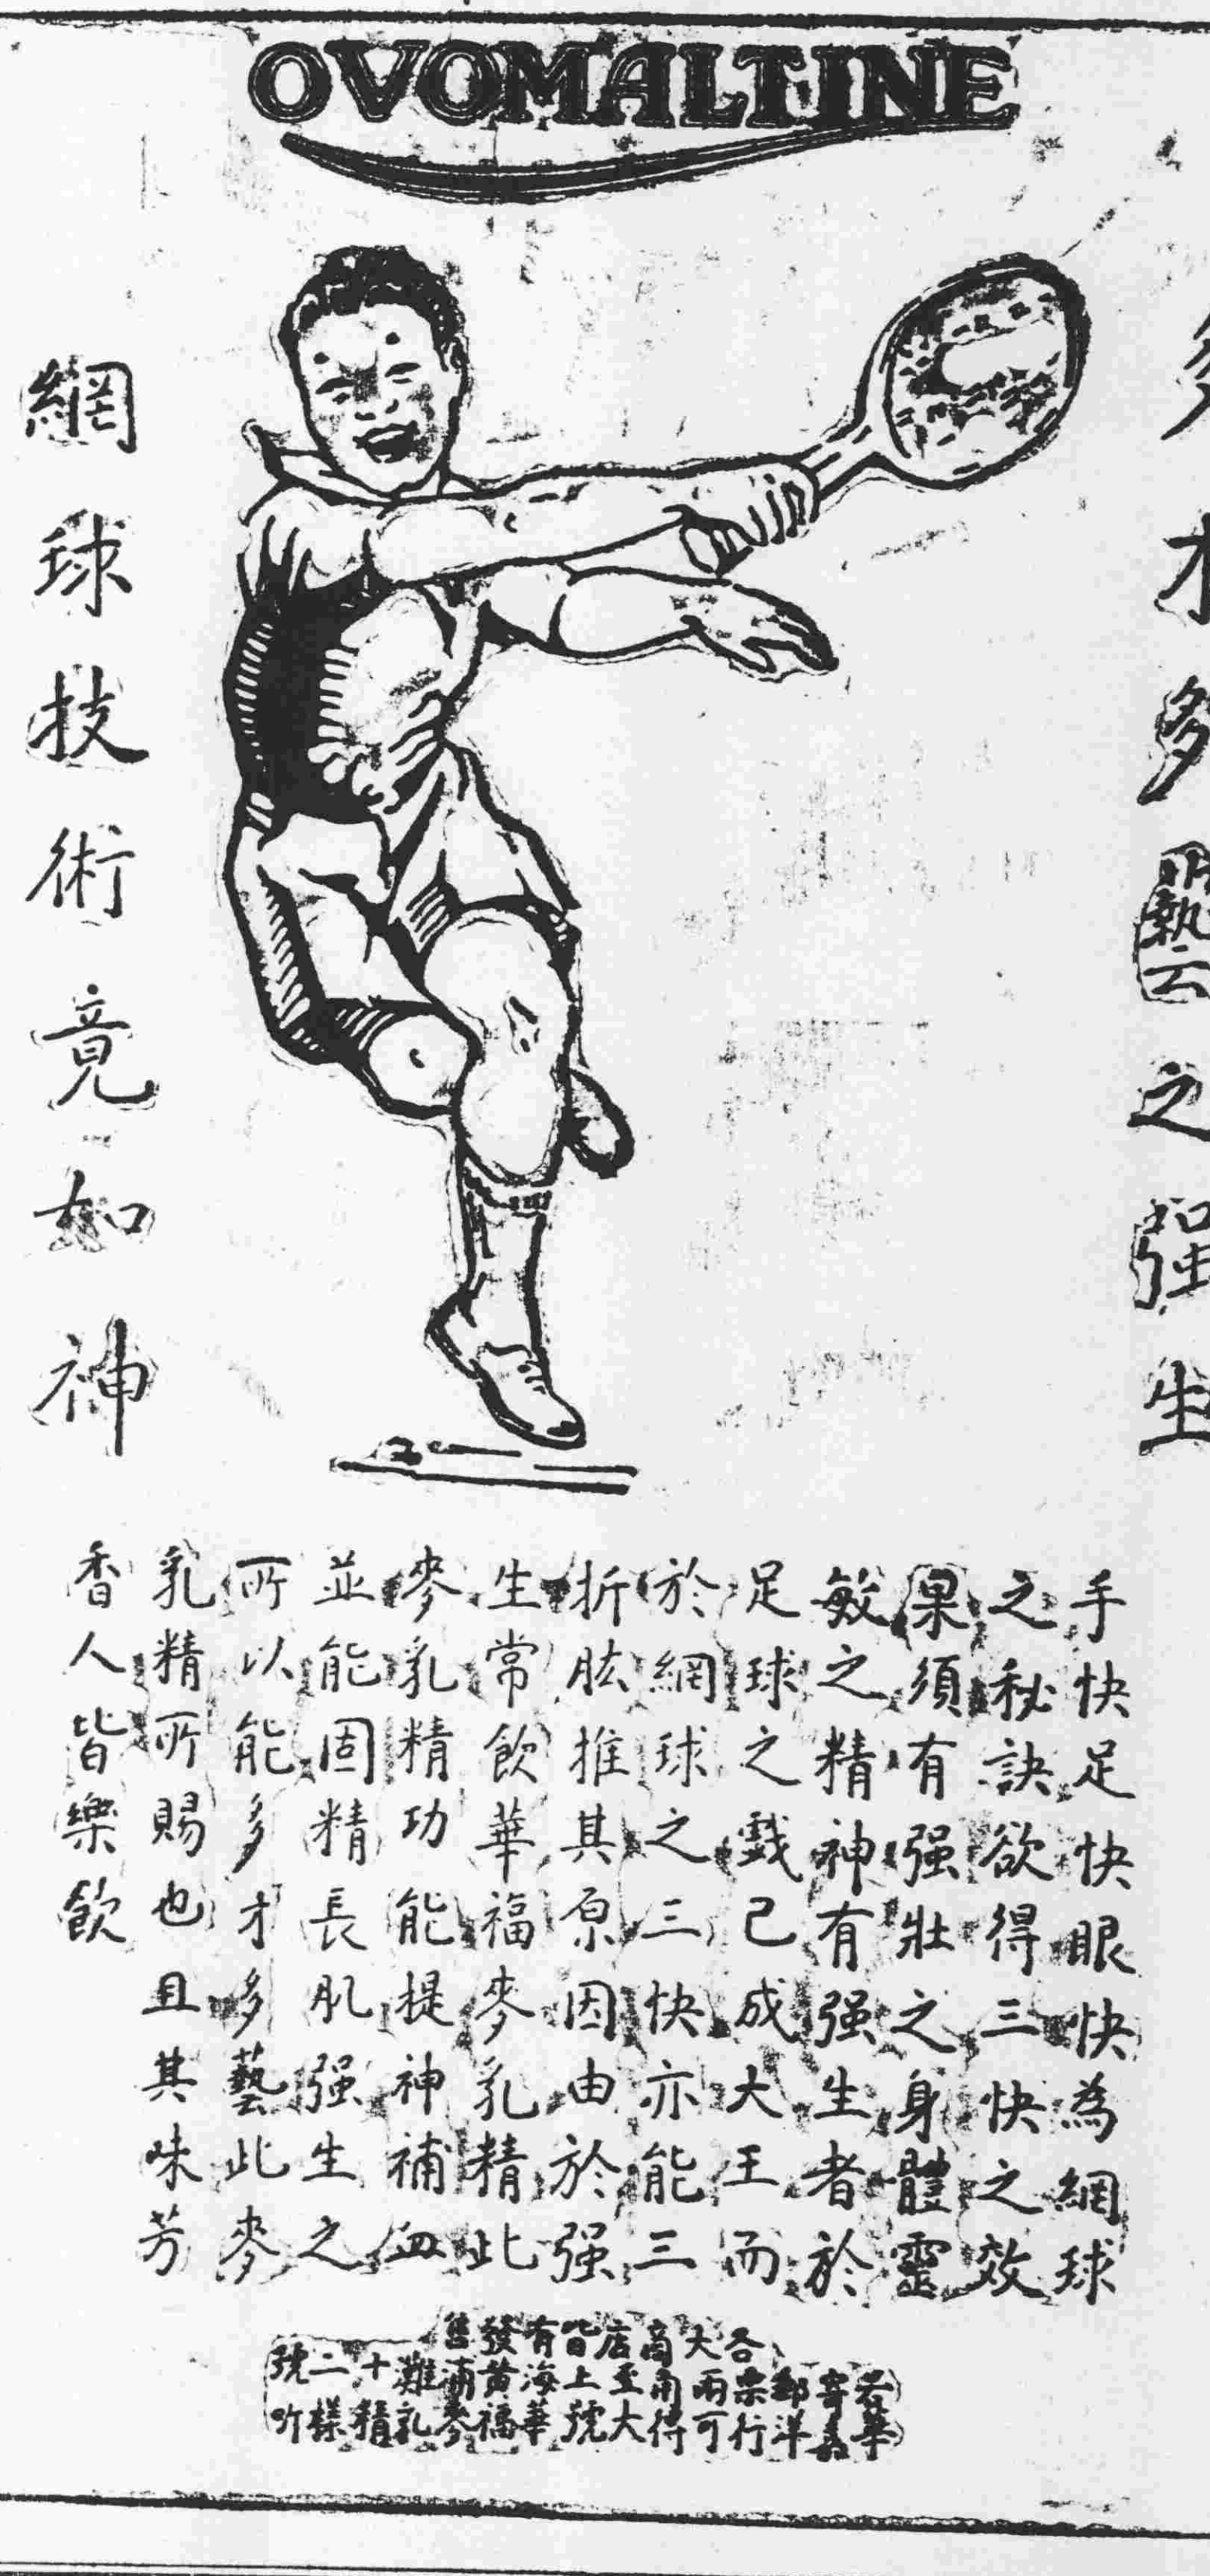 OVOMALTINE
多才多藝之强生
網球技術竟如神
手快足快眼快為網球
之秘訣欲得三快之效
果須有强壯之身體靈
敏之精神有强生者於
足球之戲己成大王而
於網球之三快亦能三
折肱推其原因由於强
生常飲華福麥乳精此
麥乳精功能提神補血
並能固精長肌强生之
所以能多才多藝此麥
乳精所賜也且其味芳
香人皆樂飲
各大商店皆有發售
若寄郵票兩角至上海黃浦灘十二號
華嘉洋行可得大號華福麥乳精樣听